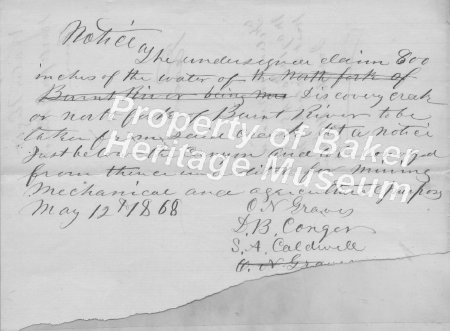 Notice
The undersigned claim 800
inches of the water of the North fork of
Burnt River being Discovery creek
or north of Burnt River to be
taken from said at a notice
Just below the Canyon and
from thence in a ditch for Mining
Mechanical and purposes
May 12th 1868
O. N. Graves
D. B. Conger
S. A. Caldwell
O. N. Graves
Property of Baker
Heritage Museum